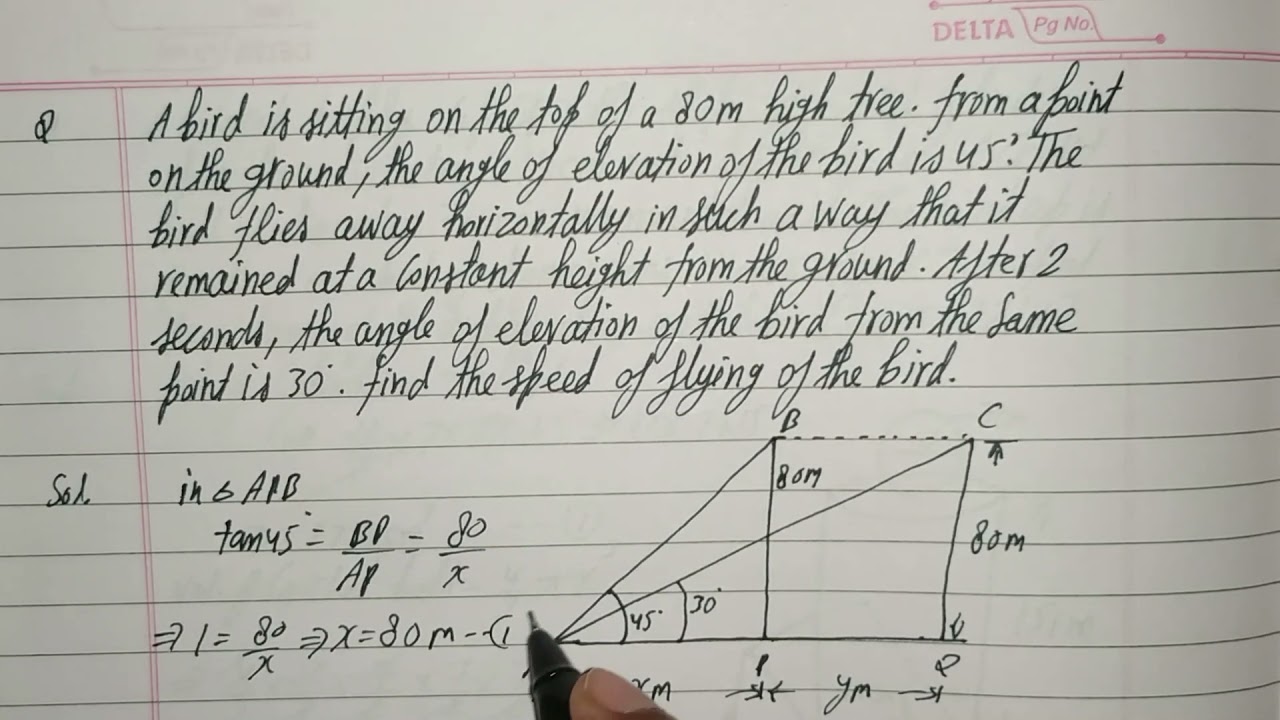 DELTA Pg No.
Q A bird is sitting on the top of a 80m high tree. from a point
on the ground, the angle of elevation of the bird is 45°. The
bird flies away horizontally in such a way that it
remained at a constant height from the ground. After 2
seconds, the angle of elevation of the bird from the same
point is 30°. find the speed of flying of the bird.
B C
Sol. in △ APB
80m
tan45° = BP/AP = 80/x
80m
⇒ 1 = 80/x ⇒ x = 80m -(1
45° 30°
P Q
xm ym